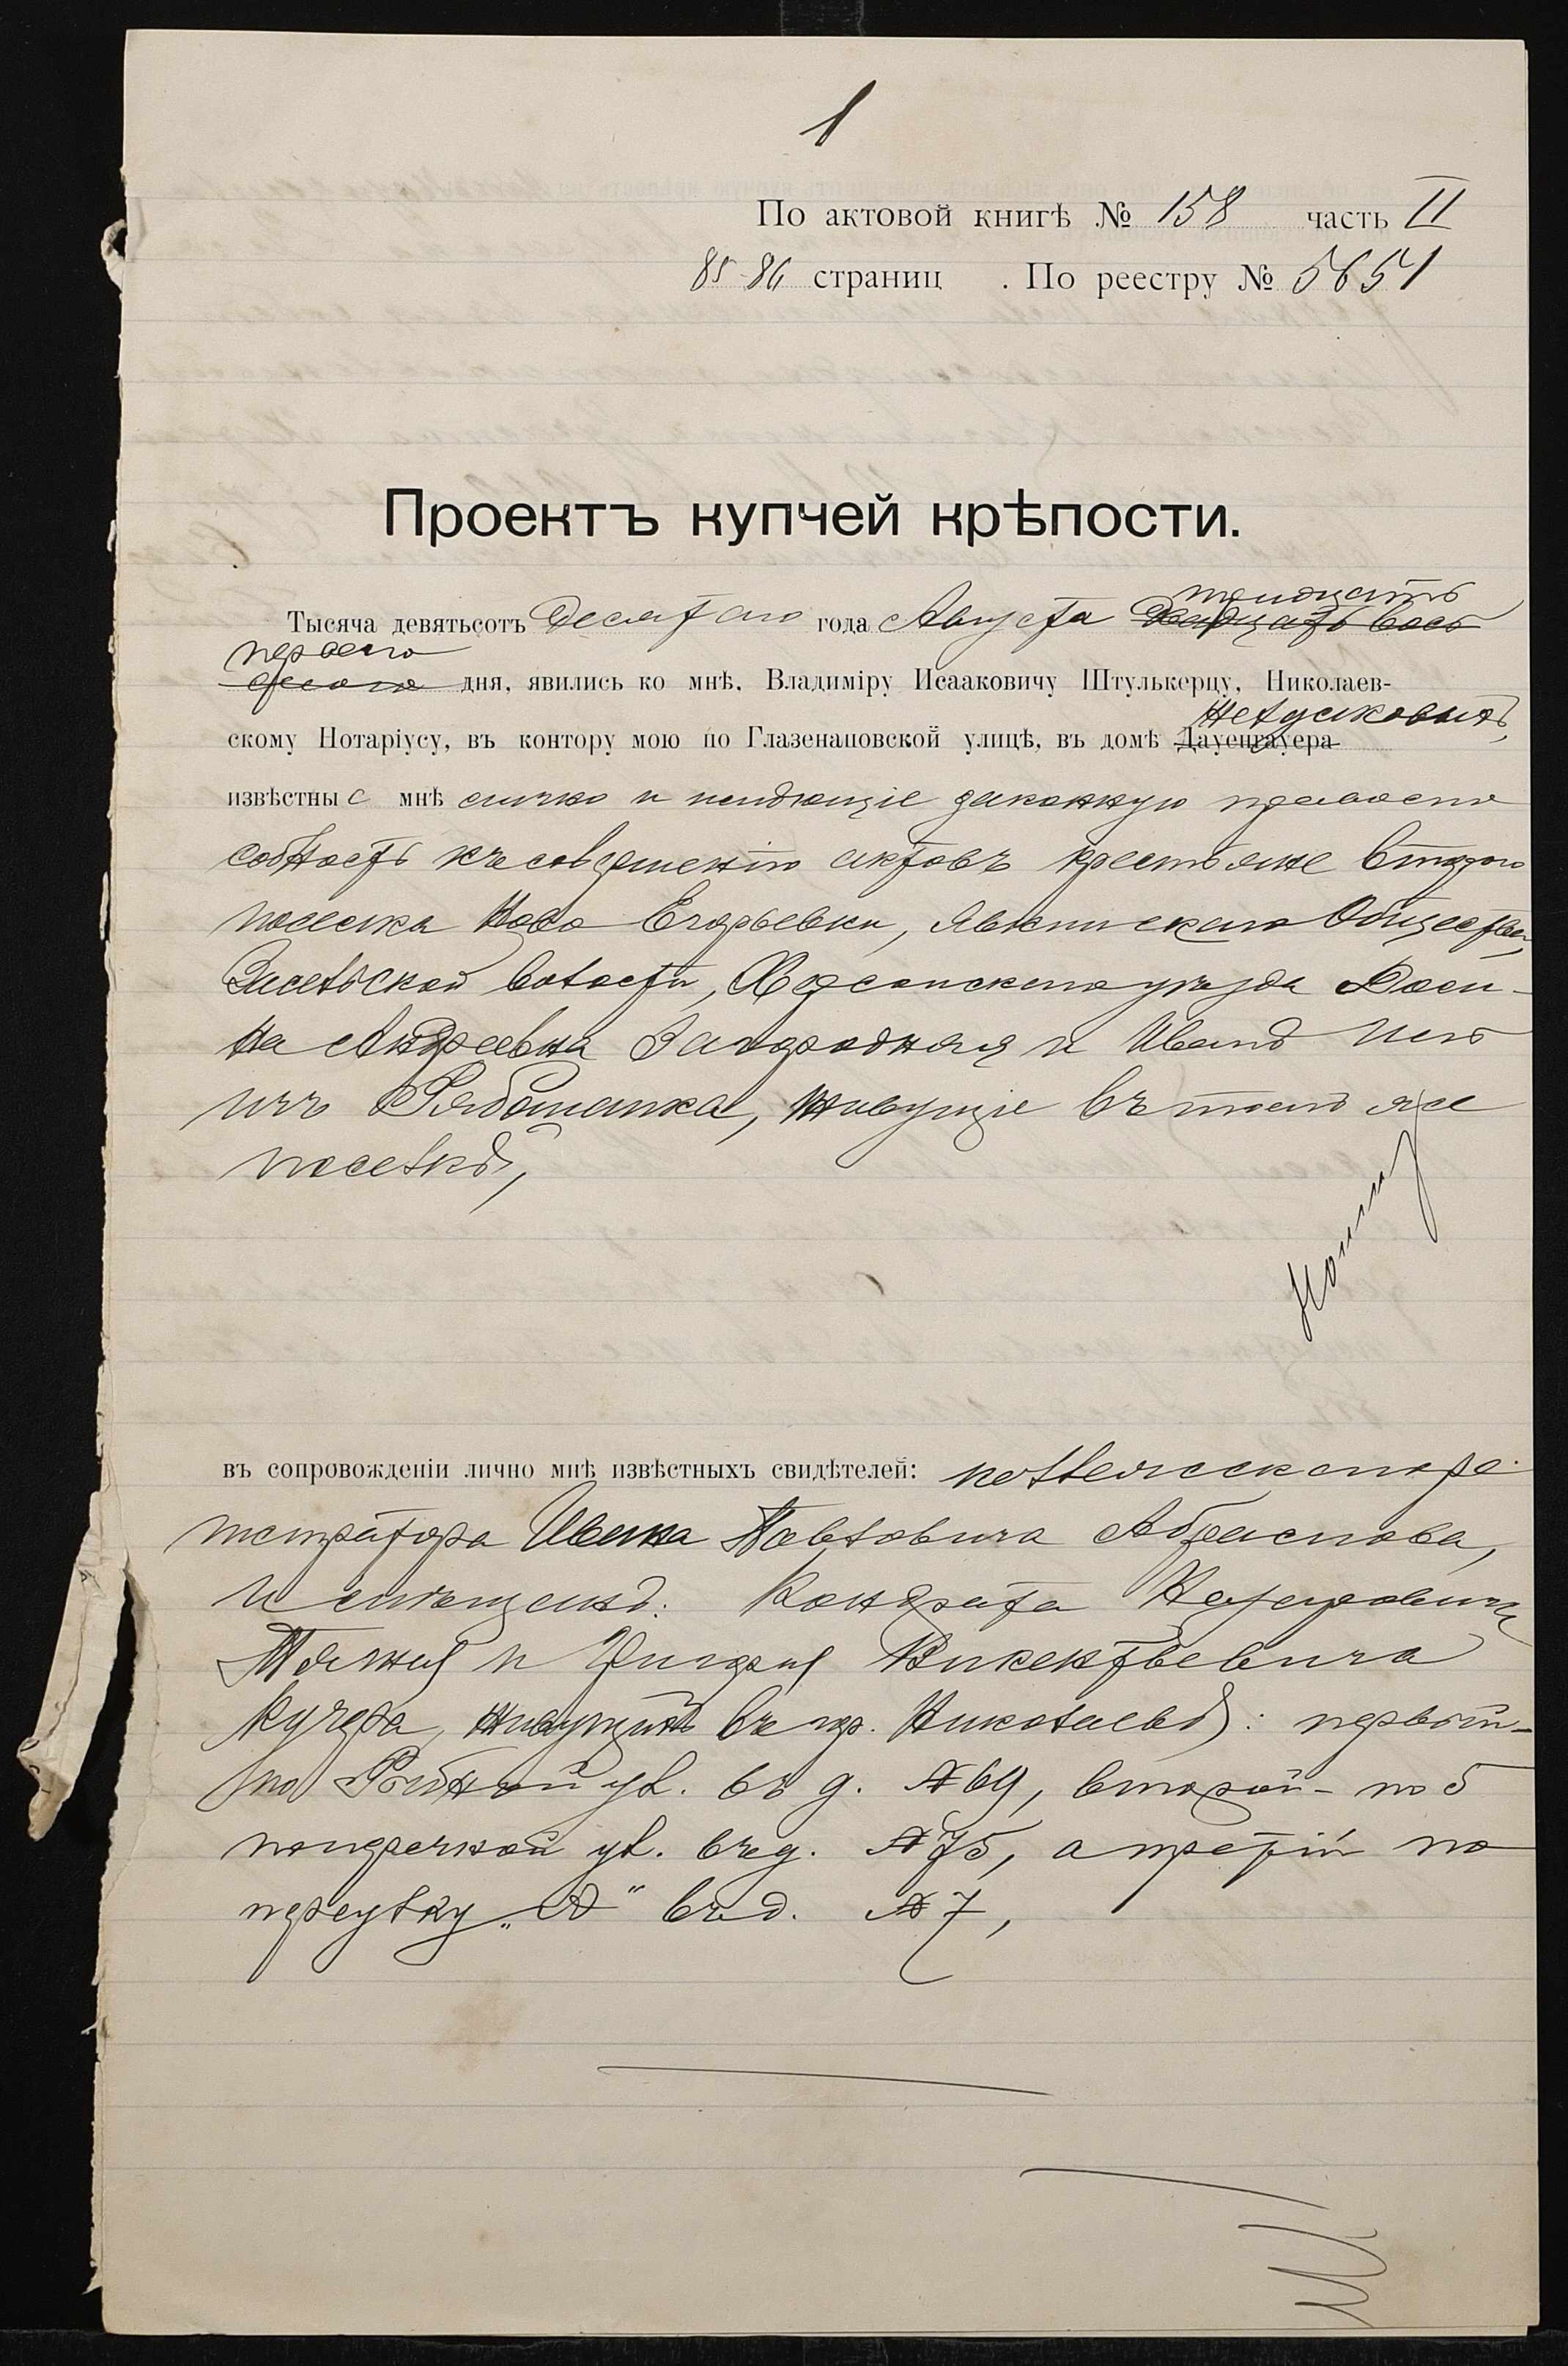 1
По актовой книгѣ № 158 часть II
85-86 страниц . По реестру № 5651
Проектъ купчей крѣпости.
тридцать
Тысяча девятьсотъ десятаго года Августа двадцать вось
перваго
дня, явились ко мнѣ, Владиміру Исааковичу Штулькерцу, Николаев-
скому Нотаріусу, въ контору мою по Глазенаповской улицѣ, въ домѣ Дауенгауера
извѣстные мнѣ лично и имѣющіе законную правоспо
собность къ совершенію актовъ крестьяне второго
поселка Ново Егорьевки, Явкинскаго Общества,
волости, Херсонскаго уѣзда
на Андреевна Загородняя и Иванъ Иль
ичъ Рябошапка, живущіе въ томъ же
поселкѣ,
въ сопровожденіи лично мнѣ извѣстныхъ свидѣтелей: коллежскаго ре-
гистратора Ивана Павловича Абрамова,
и мѣщанъ: Кондрата
и Викентьевича
Кучера, живущихъ въ гор. Николаевѣ: первый-
по Рыбной ул. въ д. № 69, второй - по 5
поперечной ул. въ д. № 75, а третій по
переулку „А" въ д. № 7,